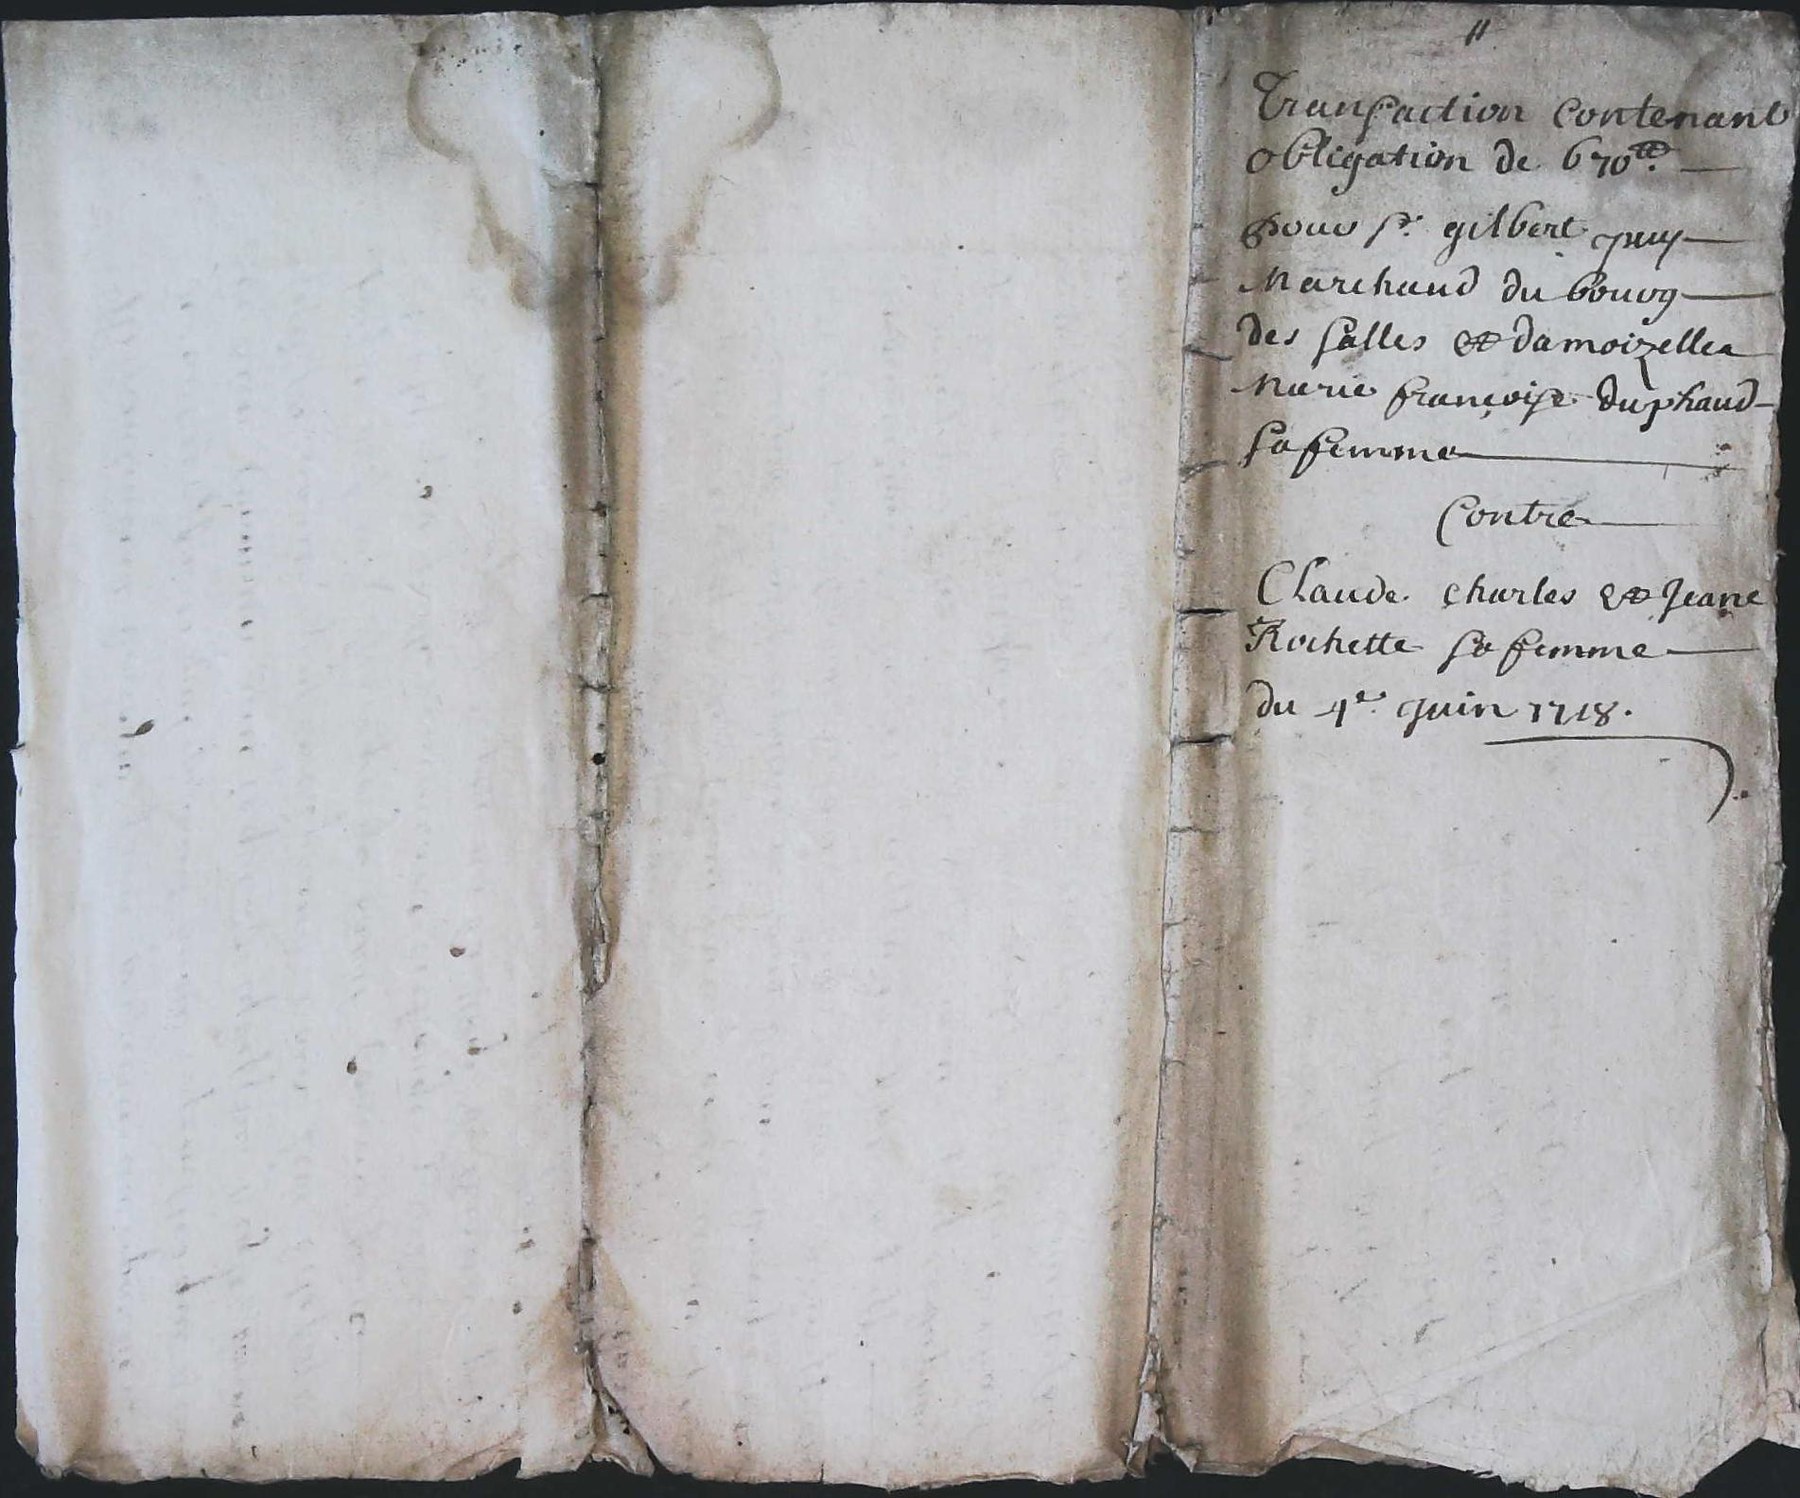 11
Transaction contenant
obligation de 670tt.
pour sr. gilbert puy
Marchand du bourg
des salles et damoizelle
Marie françoise duphaud
sa femme
Contre
Claude charles et Jeane
Rochette sa femme
du 4e. juin 1718.